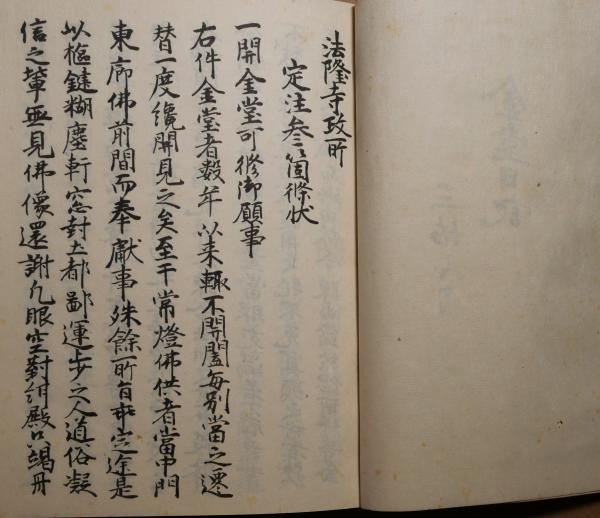 法隆寺政所
定注叄箇條状
一開金堂可修御願事
右件金堂者数年以来輙不開闔每別當之遷
替一度纔開見之矣至于常燈佛供者當中門
東廊佛前間而奉獻事殊餘所自無定途是
以樞鍵糊塵軒窓封土都鄙運歩之人道俗凝
信之輩無見佛像還謝凡眼空對紺殿只竭丹